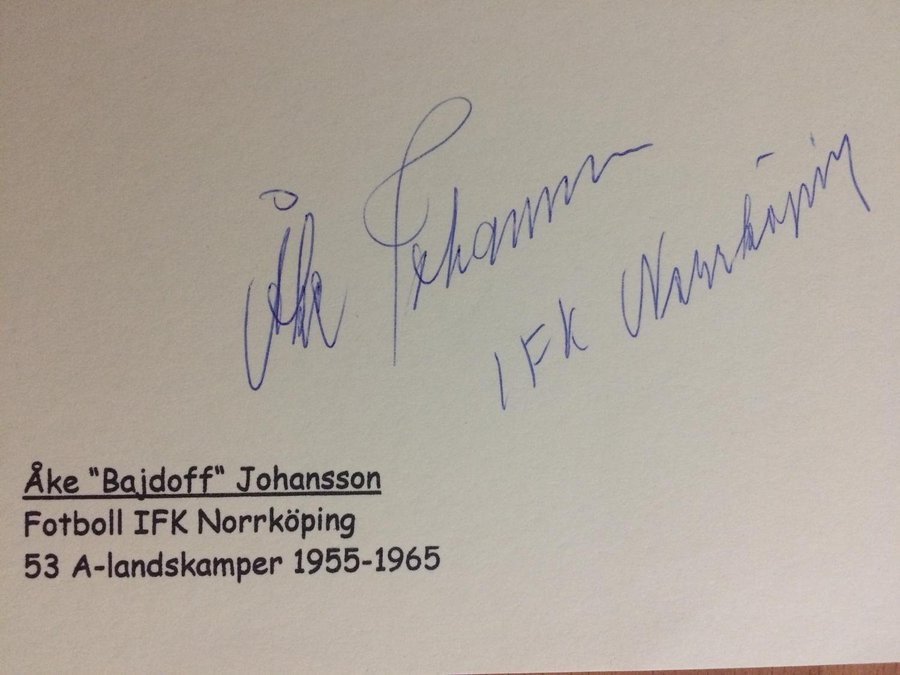 Åke Johansson
IFK Norrköping
Åke "Bajdoff" Johansson
Fotboll IFK Norrköping
53 A-landskamper 1955-1965